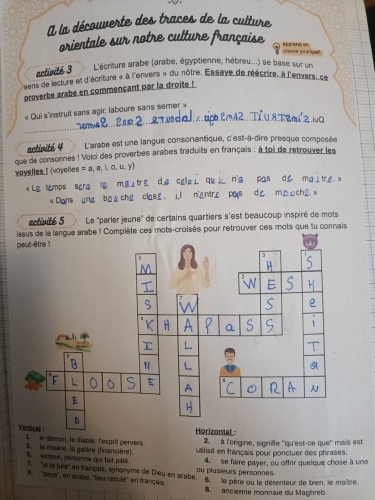 A la découverte des traces de la culture
orientale sur notre culture française
apprends en
activité 3 L'écriture arabe (arabe, égyptienne, hébreu...) se base sur un
sens de lecture et d'écriture « à l'envers » du nôtre. Essaye de réécrire, à l'envers, ce
proverbe arabe en commençant par la droite !
« Qui s'instruit sans agir, laboure sans semer »
.iuQ
activité 4 L'arabe est une langue consonantique, c'est-à-dire presque composée
que de consonnes ! Voici des proverbes arabes traduits en français : à toi de retrouver les
voyelles ! (voyelles = a, e, i, o, u, y)
« Le temps sera le maitre de celui qui n'a pas de maitre. »
« Dans une bouche close, il n'entre pas de mouche. »
activité 5 Le "parler jeune" de certains quartiers s'est beaucoup inspiré de mots
issus de la langue arabe ! Complète ces mots-croisés pour retrouver ces mots que tu connais
peut-être !
MISKINE
WALLAH
HESS
SHeiTaN
WESH
KHAPaSS
BLED
FLOOSE
CORAN
Vertical :
1. le démon, le diable, l'esprit pervers.
3. la misère, la galère (financière).
5. victime, personne qui fait pitié.
7. "je le jure" en français, synonyme de Dieu en arabe.
9. "pays", en arabe, "lieu reculé" en français.
Horizontal :
2. à l'origine, signifie "qu'est-ce que" mais est
utilisé en français pour ponctuer des phrases.
4. se faire payer, ou offrir quelque chose à une
ou plusieurs personnes.
6. le père ou le détenteur de bien, le maître.
8. ancienne monnaie du Maghreb.